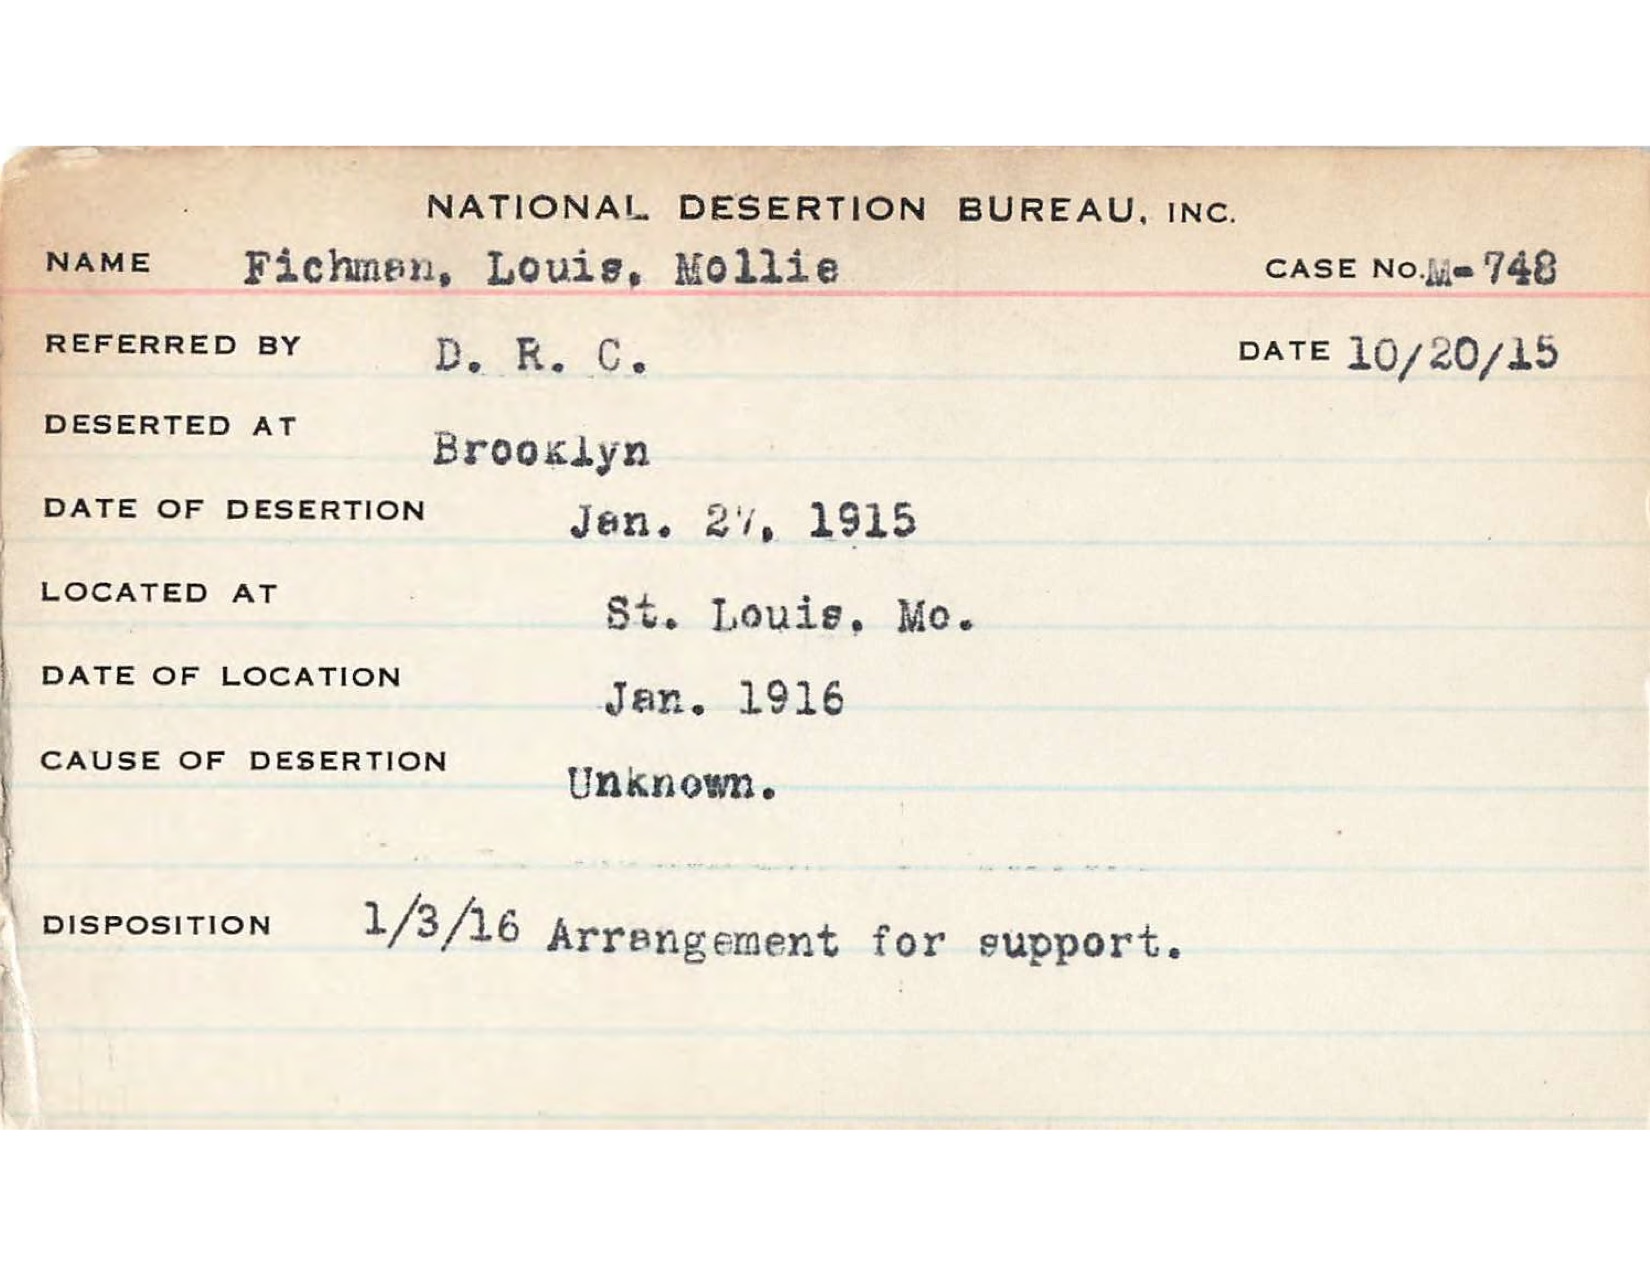 NATIONAL DESERTION BUREAU, INC.
NAME Fichman, Louis, Mollie CASE No. M-748
REFERRED BY D. R. C. DATE 10/20/15
DESERTED AT Brooklyn
DATE OF DESERTION Jan. 27, 1915
LOCATED AT St. Louis, Mo.
DATE OF LOCATION Jan. 1916
CAUSE OF DESERTION Unknown.
DISPOSITION 1/3/16 Arrangement for support.